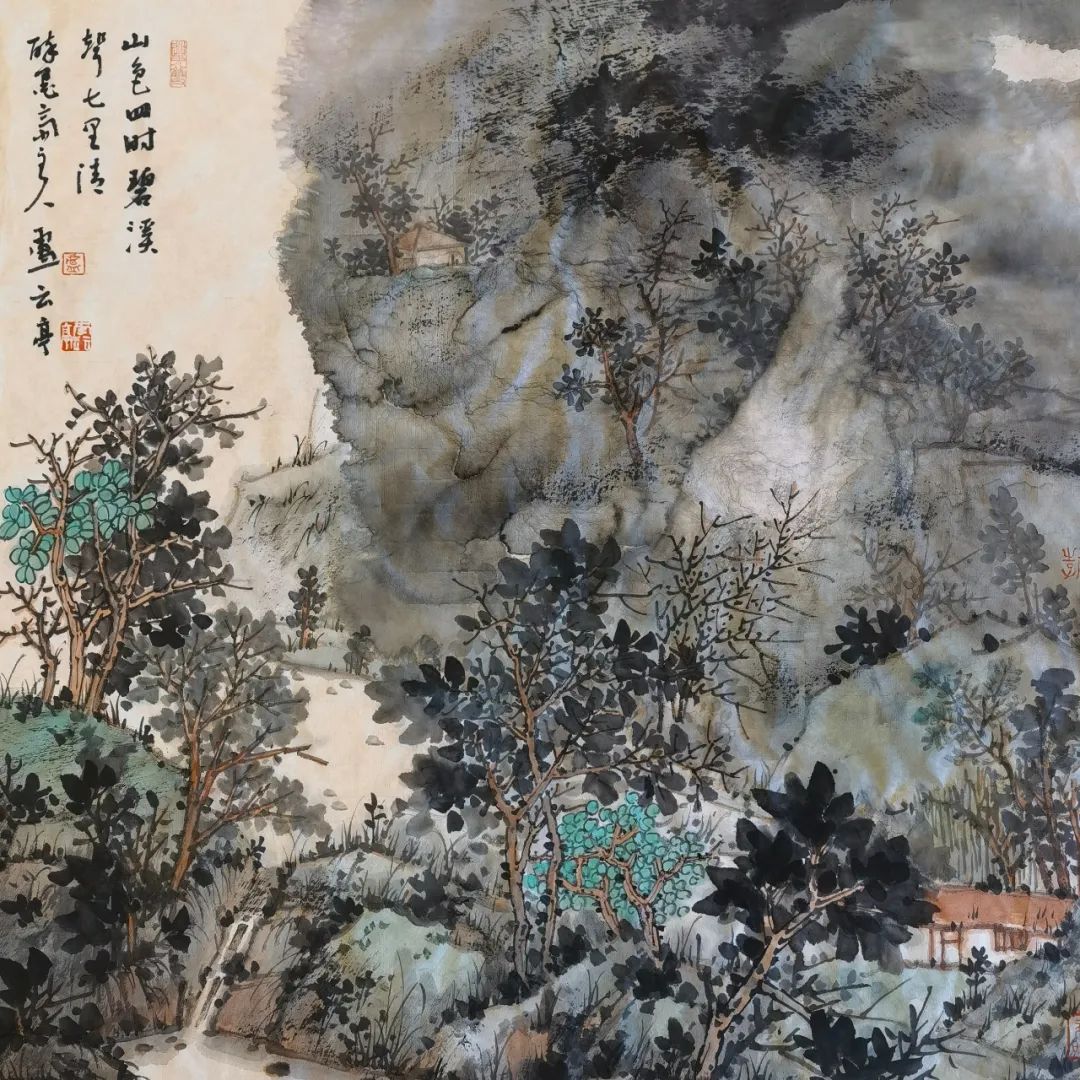 山色四时碧溪
声七里清
醉墨斋主人画云亭